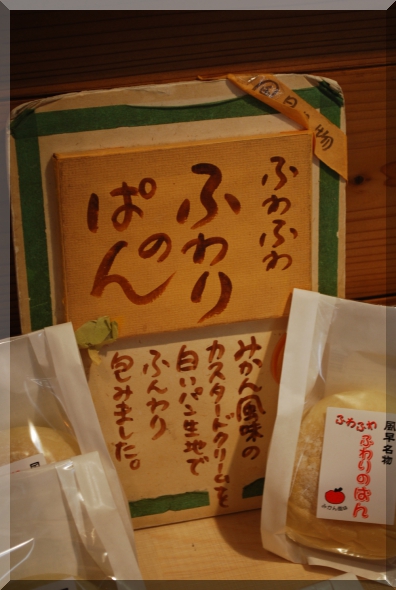 風早名物
ふわふわ
ふわり
の
ぱん
みかん風味の
カスタードクリームを
白いパン生地で
ふんわり
包みました。
風早名物
ふわふわ
ふわりのぱん
みかん風味